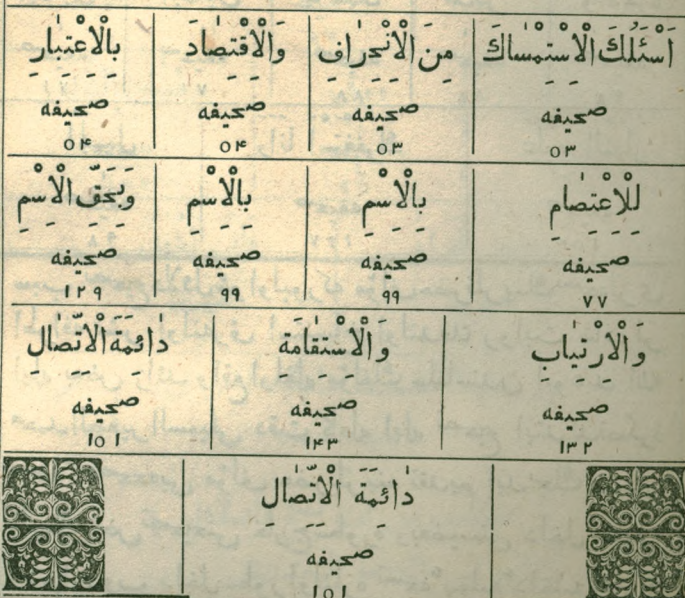 اَسْئَلُكَ الْاِسْتِمْسَاكَ مِنَ الْاِنْحِرَافِ وَالْاِقْتِصَادَ بِالْاِعْتِبَارِ
صحيفه صحيفه صحيفه صحيفه
٥٣ ٥٣ ٥۴ ٥۴
لِلْاِعْتِصَامِ بِالْاِسْمِ بِالْاِسْمِ وَبِحَقِّ الْاِسْمِ
صحيفه صحيفه صحيفه صحيفه
٧٧ ٩٩ ٩٩ ١٢٩
وَالْاِرْتِيَابِ وَالْاِسْتِقَامَةِ دَائِمَةَ الْاِتِّصَالِ
صحيفه صحيفه صحيفه
١٣٢ ١۴٣ ١٥١
دَائِمَةَ الْاِتِّصَالِ
صحيفه
١٥١